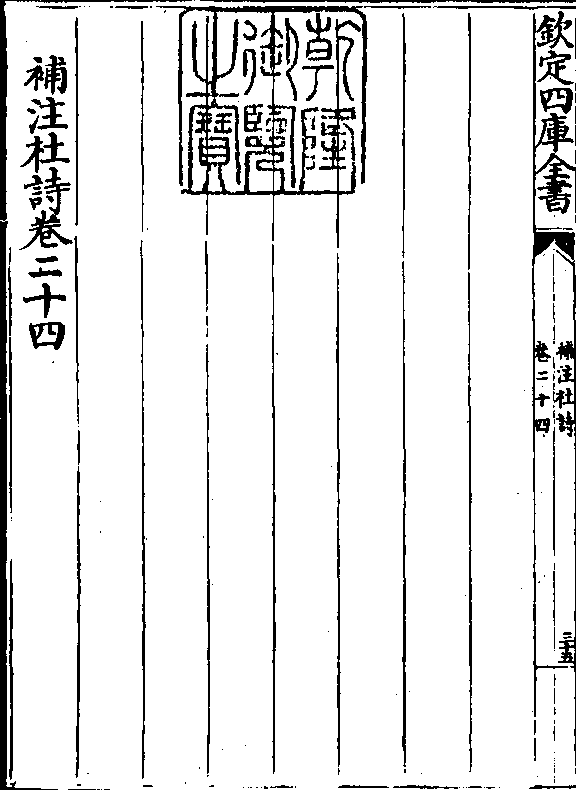 欽定四庫全書
補注杜詩
卷二十四
三十五
乾隆
御覽
之寶
補注杜詩卷二十四